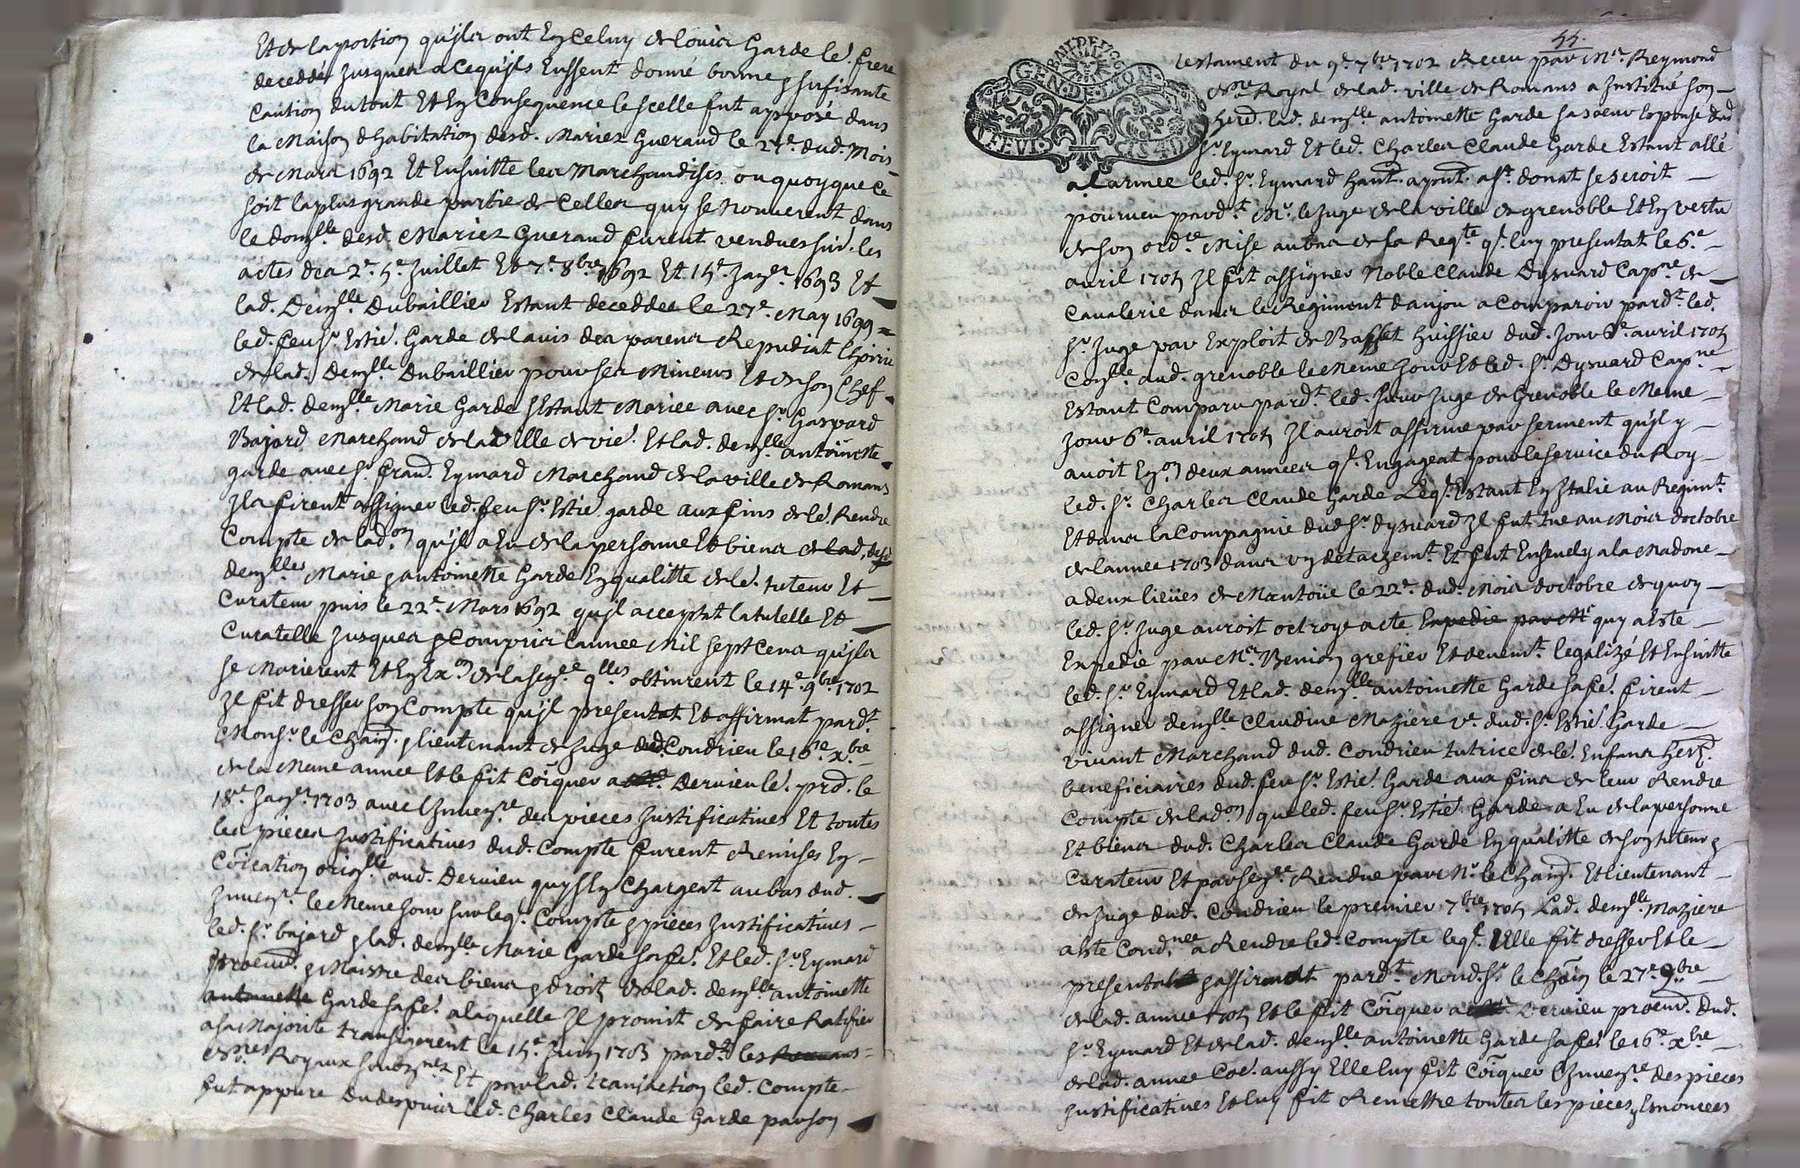 Et de la portion qu'jls ont En Celuy de Louis Garde le.' frere
decedde Jusques a Cequ'jls Eussent donné bonne & suffisante
Caution du tout Et En Consequence le scelle fut apposé dans
la Maison d'habitation desd. Mariez Gueraud le 21e. dud. Mois
de Mars 1692 Et Ensuitte les Marchandises ou quoy que Ce
soit la plus grande partie de Celles quy se trouverent dans
le domlle desd. Mariez Gueraud furent vendues suiv. les
actes des 2e. 5e. Juillet Et 7e. 8bre 1692 Et 15e. Janer. 1693 Et
lad. Demlle Dubaillier Estant deceddee le 27e. May 1699 =
led. feu Sr. Estie.' Garde de l'avis des parens Repudiat l'hoirie
de lad. Demlle Dubaillier pour ses Mineurs Et de son Chef
Et lad. demlle Marie Garde s'Estant Mariee avec Sr. Gaspard
Bajard Marchand de la ville de vie.' Et lad. demlle. antoinette
garde avec Sr. Frand. Eymard Marchand de la ville de Romans
Jls firent assigner led. feu Sr. Estie.' garde aux fins de le.' Rendre
Compte de ladon qu'jl a Eu de la personne Et biens de lad.
demlles Marie & antoinette Garde En qualitte de le.' tuteur Et
Curateur puis le 22e. Mars 1692 qu'jl acceptat la tutelle Et
Curatelle Jusques & Compris l'année Mil sept Cens qu'jls
se Marierent Et En Exon de la sence qlles obtinrent le 14e. 9bre 1702
Jl fit dresser son Compte qu'jl presentat Et affirmat pardt.
Monsr. le Chan. & lieutenant de Juge dud. Condrieu le 16e. xbre
de la Meme année Et le fit Coiquer a Dervieu le.' prd. le
18e. Janer. 1703 avec l'Jnvenre. des pieces Justificatives Et toutes
les pieces Justificatives dud. Compte furent Remises En
Coication origlle aud. Dervieu quy s'En Chargeat au bas dud.
Jnvenre. le Meme Jour sur leql. Compte & pieces Justificatives
led. Sr. bajard & lad. demlle Marie Garde sa fe.' Et led. Sr. Eymard
& Maistre des biens & droits de lad. demlle antoinette
antoinette Garde sa fe.' a laquelle Jl promit de faire Ratifier
a sa Majorite transigerent le 15e. Juin 1703 pardt. les Romans
Royaux Et par lad. transaction led. Compte
fut appure Du despuis led. Charles Claude Garde par son
55.
GEN. DE. LYON.
testament du 9e. 7bre 1702 Receu par Me. Reymond
Royal de lad. ville de Romans a Jnstitué son
hered. lad. demlle antoinette Garde sa soeur Espouse dud
Sr. Eymard Et led. Charles Claude Garde Estant allé
a l'armee led. Sr. Eymard se seroit
pourveu pardt. Mr. le Juge de la ville de grenoble Et En vertu
de son ordre Mise au bas de sa Reqte ql. luy presentat le 6e
avril 1705 Jl fit assigner Noble Claude Dysuard Capne de
Cavalerie dans le Regiment d'anjou a Comparoir pardt. led.
Sr. Juge par Exploit de Basset huissier dud. Jour 6e. avril 1705
aud. grenoble le Meme Jour Et led. Sr. Dysuard Capne
Estant Comparu pardt. led. Sieur Juge de Grenoble le Meme
Jour 6e. avril 1705 Jl auroit affirme par serment qu'jl y
avoit Enon deux annees ql. Engageat pour le service du Roy
led. Sr. Charles Claude Garde Leql. Estant En Jtalie au Regimt.
Et dans la Compagnie dud. Sr. Dysuard Jl fut tué au Mois d'octobre
de l'annee 1703 dans un detachemt. Et fut Enseuely a la Madone
a deux lieües de Mantoüe le 22e. dud. Mois d'octobre de quoy
led. Sr. Juge auroit octroye acte Expedie par Me quy a Este
Expedie par Me. Benion grefier Et devemt. legalizé Et Ensuitte
led. Sr. Eymard Et lad. demlle antoinette Garde sa fe.' firent
assigner demlle Claudine Maziere ve. dud. Sr. Estie.' Garde
vivant Marchand dud. Condrieu tutrice de le.' Enfans hers.
beneficiaires dud. feu Sr. Estie.' Garde aux fins de leur Rendre
Compte de ladon que led. feu Sr. Estie.' Garde a Eu de la personne
Et biens dud. Charles Claude Garde En qualitte de son tuteur &
Curateur Et par sence Rendue par Mr. le Chan. Et lieutenant
de Juge dud. Condrieu le premier 7bre 1705 Lad. demlle. Maziere
a Este Condnee a Rendre led. Compte leql. Elle fit dresser Et le
presentat & affirmat pardt. Mond. Sr. le Chan le 27e. 9bre
de lad. annee 1705 Et le fit Coiquer a Dervieu procur. dud.
Sr. Eymard Et de lad. demlle antoinette Garde sa fe.' le 16e. xbre
de lad. annee Coe.' aussy Elle luy fit Coiquer l'Jnvenre des pieces
Justificatives Et luy fit Remettre toutes les pieces Enoncees